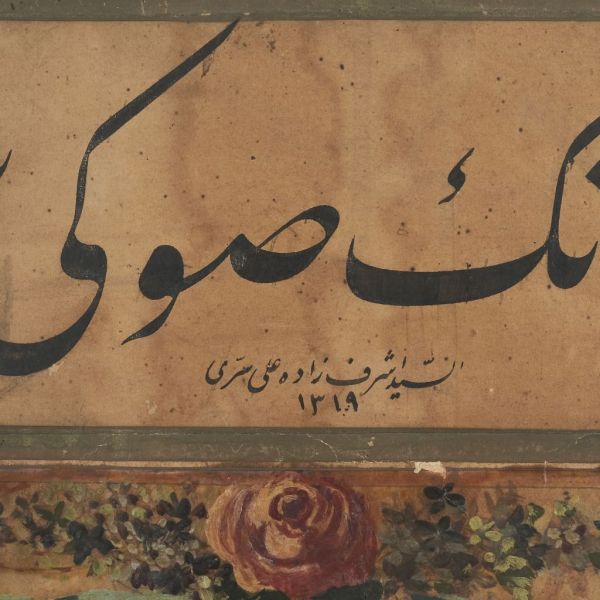 نك صوكى
السيد اشرف زاده على سرّى
١٣١٩